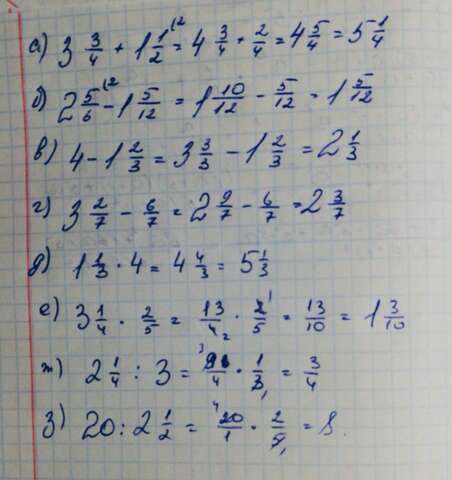 а) 3 3/4 + 1 1/2 (2 = 4 3/4 + 2/4 = 4 5/4 = 5 1/4
б) 2 5/6 (2 - 1 5/12 = 1 10/12 - 5/12 = 1 5/12
в) 4 - 1 2/3 = 3 3/3 - 1 2/3 = 2 1/3
г) 3 2/7 - 6/7 = 2 9/7 - 6/7 = 2 3/7
д) 1 1/3 · 4 = 4 4/3 = 5 1/3
е) 3 1/4 · 2/5 = 13/4 2 · 2 1/5 = 13/10 = 1 3/10
ж) 2 1/4 : 3 = 3 9/4 · 1/3 1 = 3/4
з) 20 : 2 1/2 = 4 20/1 · 2/5 1 = 8.